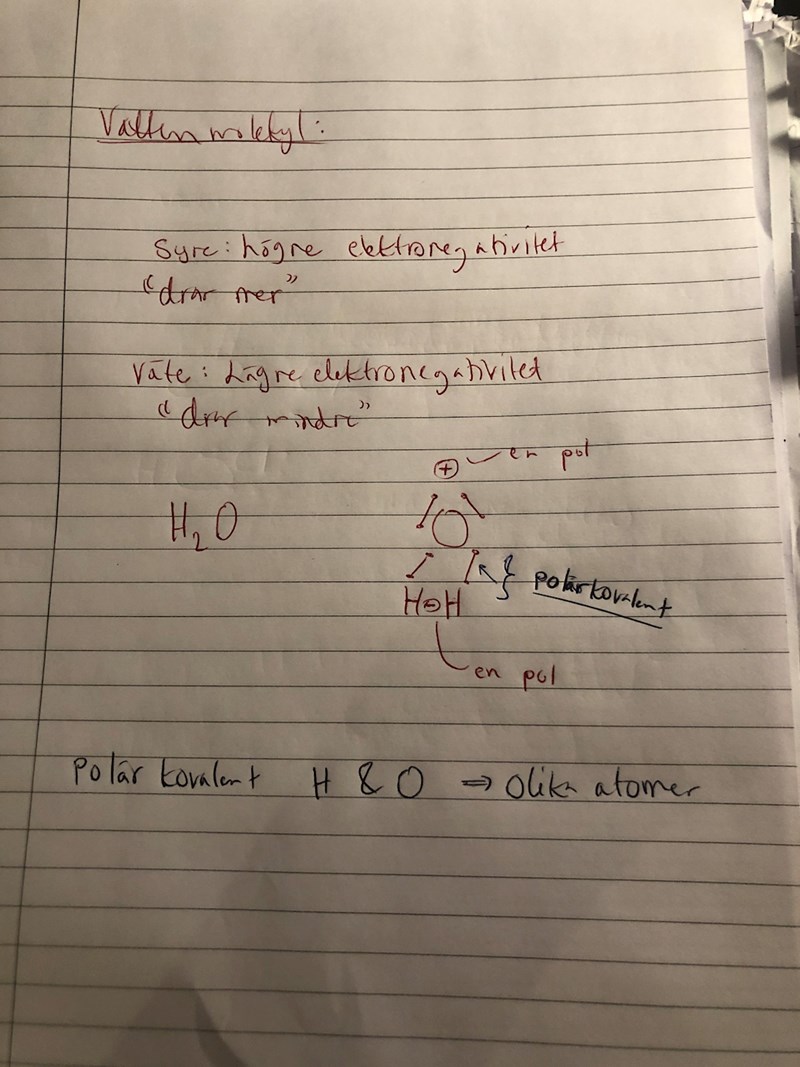 Vattenmolekyl:
Syre: högre elektronegativitet
"drar mer"
Väte: Lägre elektronegativitet
"drar mindre"
⊕ en pol
H₂O
O
polärkovalent
H⊖H
en pol
Polär kovalent H & O ⇒ Olika atomer